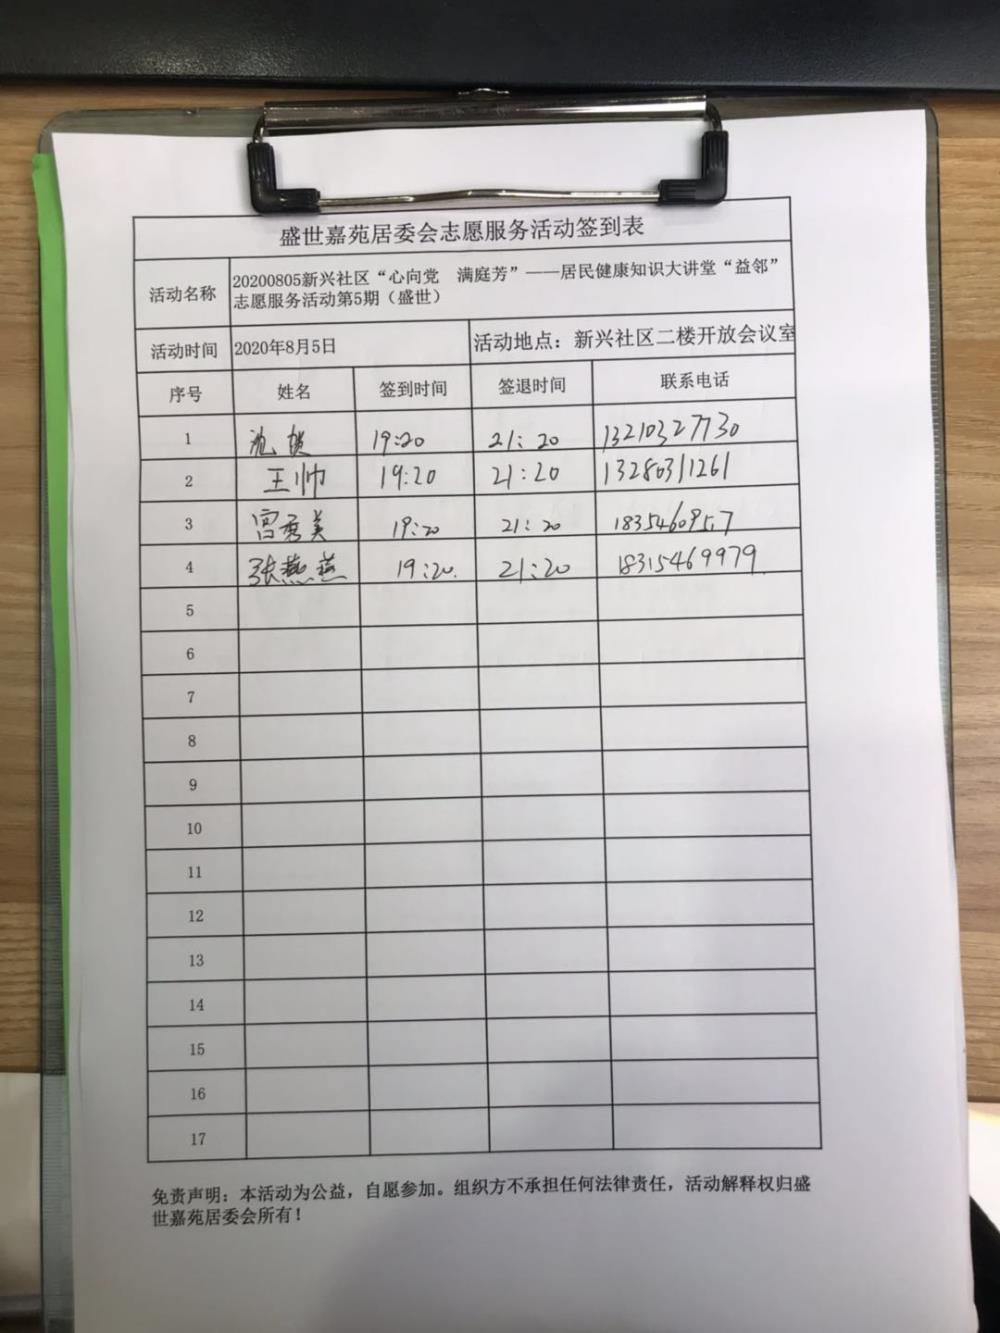 盛世嘉苑居委会志愿服务活动签到表
活动名称 20200805新兴社区“心向党 满庭芳”——居民健康知识大讲堂“益邻”
志愿服务活动第5期（盛世）
活动时间 2020年8月5日 活动地点：新兴社区二楼开放会议室
序号 姓名 签到时间 签退时间 联系电话
1 19:20 21:20 13210327730
2 王帅 19:20 21:20 13280311261
3 宫秀美 19:20 21:20
4 张燕燕 19:20. 21:20 18315469979.
5
6
7
8
9
10
11
12
13
14
15
16
17
免责声明：本活动为公益，自愿参加。组织方不承担任何法律责任，活动解释权归盛
世嘉苑居委会所有！